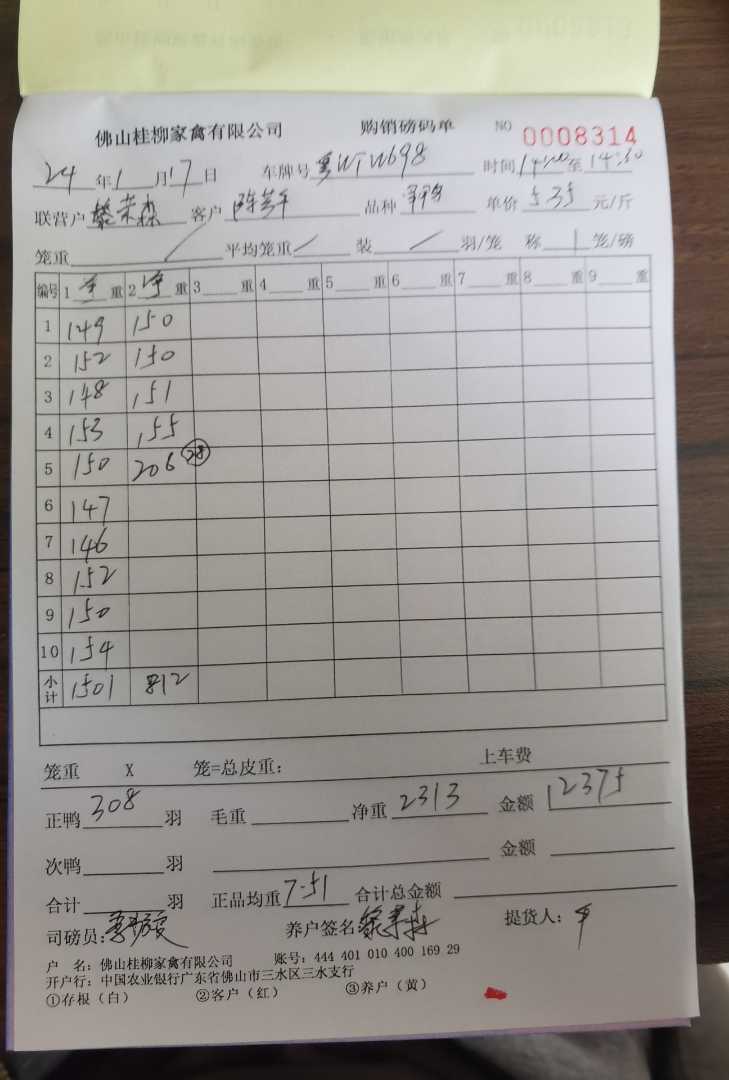 佛山桂柳家禽有限公司 购销磅码单 NO 0008314
24年1月17日 车牌号粤WTW698 时间14:00至14:30
联营户黎荣森 客户 品种 单价5.35元/斤
笼重/ 平均笼重/ 装/羽/笼 称1笼/磅
编号 1净重 2净重 3重 4重 5重 6重 7重 8重 9重
1 149 150
2 152 150
3 148 151
4 153 155
5 150 206 (28)
6 147
7 146
8 152
9 150
10 154
小计 1501 812
笼重 X 笼=总皮重: 上车费
正鸭308羽 毛重 净重2313 金额12375
次鸭 羽 金额
合计 羽 正品均重7.51 合计总金额
司磅员: 养户签名黎荣森 提货人:
户 名:佛山桂柳家禽有限公司 账号:444 401 010 400 169 29
开户行:中国农业银行广东省佛山市三水区三水支行
①存根(白) ②客户(红) ③养户(黄)